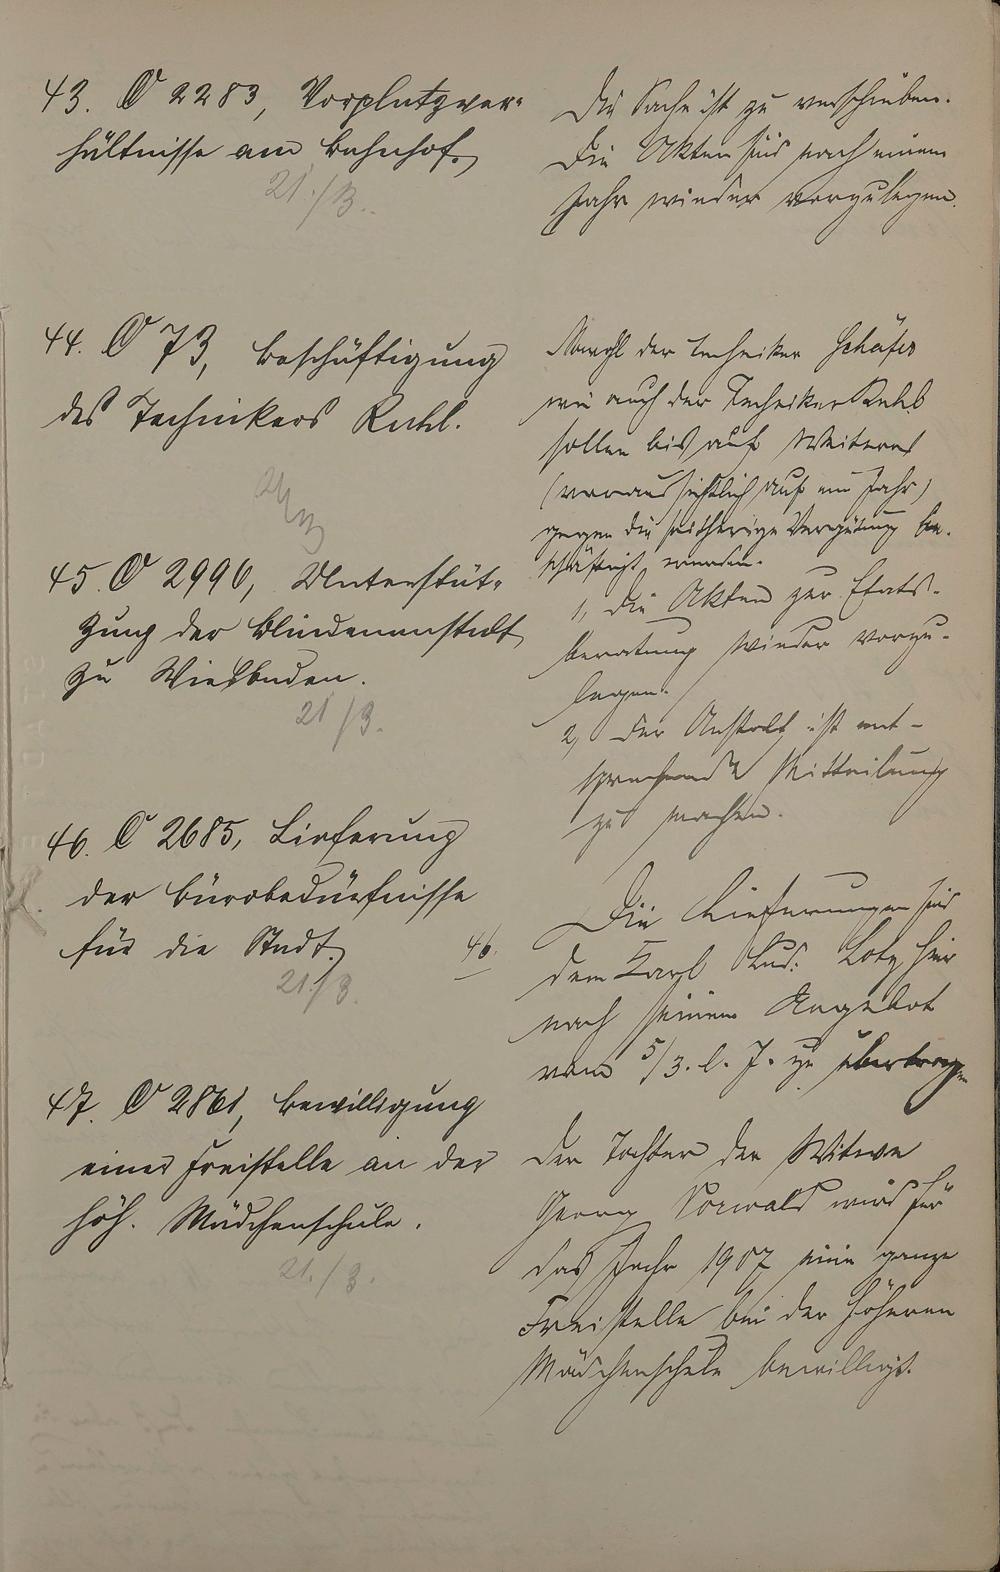 43. C 2283, Vorplatzver-
hältnisse am Bahnhof.
21./3.
Die Sache ist zu verschieben.
Die Akten sind nach einem
Jahr wieder vorzulegen.
44. C 73, Beschäftigung
des Technikers Ruhl.
21/3
Sowohl der Techniker Schäfer
wie auch der Techniker Ruhl
sollen bis auf Weiteres
(voraussichtlich auf ein Jahr)
gegen die seitherige Vergütung be-
schäftigt werden.
45. C 2990, Unterstüt-
zung der Blindenanstalt
zu Wiesbaden.
21/3.
1, Die Akten zur Etats-
beratung wieder vorzu-
legen.
2, Der Anstalt ist ent-
sprechende Mitteilung
zu machen.
46. C 2685, Lieferung
der Bürobedürfnisse
für die Stadt.
21./3.
46.
Die Lieferungen sind
dem Karl Lud. Lotz hier
nach seinem Angebot
vom 5/3. l. J. zu übertragen
47. C 2861, Bewilligung
einer Freistelle an der
höh. Mädchenschule.
21./3.
Der Tochter der Witwe
Georg Vorwald wird für
das Jahr 1907 eine ganze
Freistelle bei der höheren
Mädchenschule bewilligt.